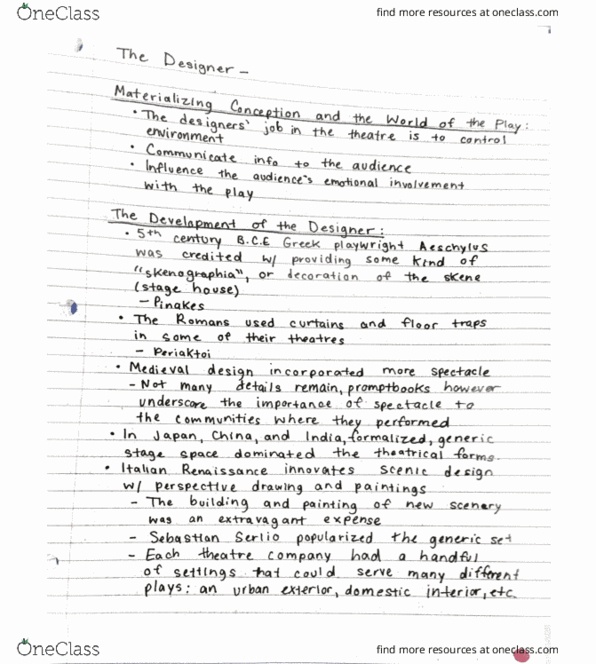 OneClass
find more resources at oneclass.com
The Designer –
Materializing Conception and the World of the Play:
• The designers' job in the theatre is to control
environment
• Communicate info to the audience
• Influence the audience's emotional involvement
with the play
The Development of the Designer:
• 5th century B.C.E Greek playwright Aeschylus
was credited w/ providing some kind of
"skenographia", or decoration of the skene
(stage house)
– Pinakes
• The Romans used curtains and floor traps
in some of their theatres
– Periaktoi
• Medieval design incorporated more spectacle
– Not many details remain, promptbooks however
underscore the importance of spectacle to
the communities where they performed
• In Japan, China, and India, formalized, generic
stage space dominated the theatrical forms.
• Italian Renaissance innovates scenic design
w/ perspective drawing and paintings
– The building and painting of new scenery
was an extravagant expense
– Sebastian Serlio popularized the generic set
– Each theatre company had a handful
of settings that could serve many different
plays: an urban exterior, domestic interior, etc.
OneClass
find more resources at oneclass.com